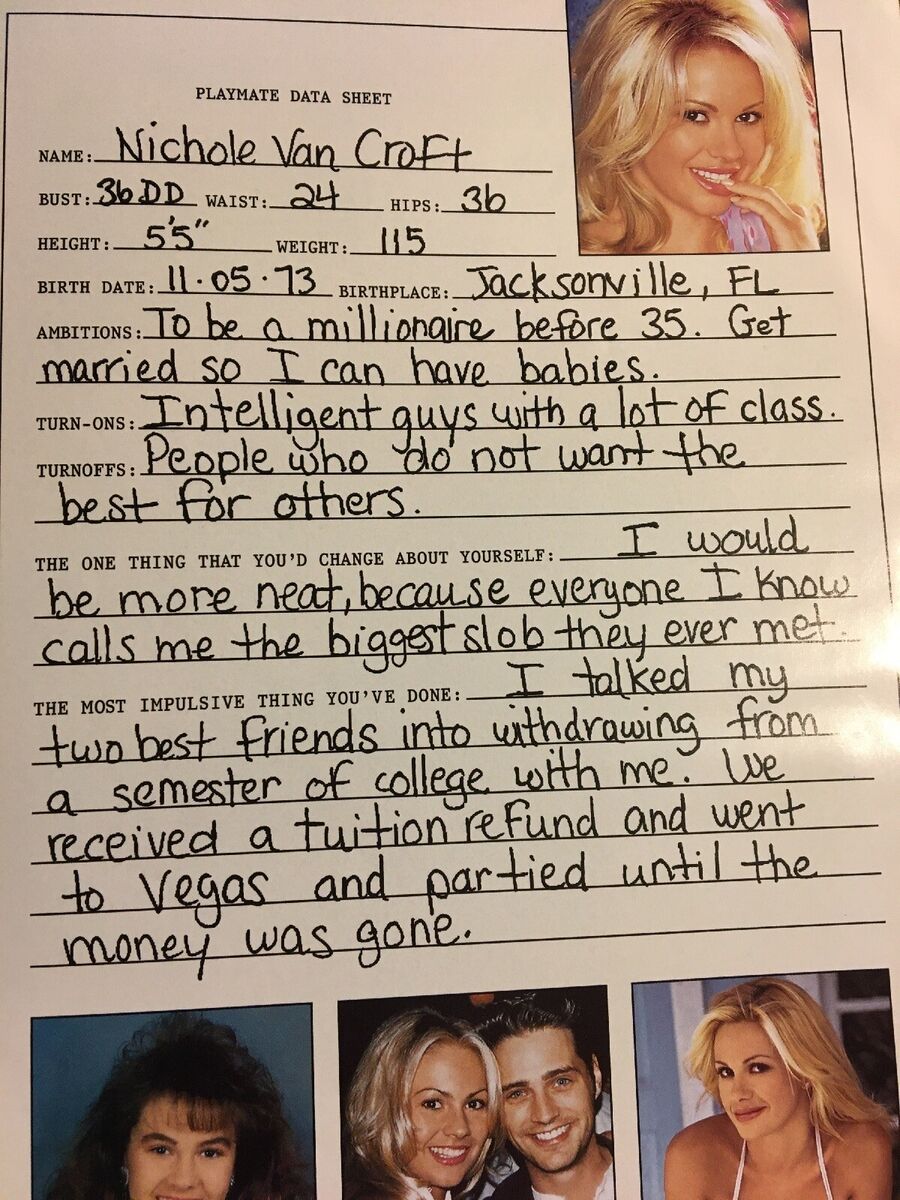 PLAYMATE DATA SHEET
NAME: Nichole Van Croft
BUST: 36DD WAIST: 24 HIPS: 36
HEIGHT: 5'5" WEIGHT: 115
BIRTH DATE: 11.05.73 BIRTHPLACE: Jacksonville, FL
AMBITIONS: To be a millionaire before 35. Get
married so I can have babies.
TURN-ONS: Intelligent guys with a lot of class.
TURNOFFS: People who do not want the
best for others.
THE ONE THING THAT YOU'D CHANGE ABOUT YOURSELF: I would
be more neat, because everyone I know
calls me the biggest slob they ever met.
THE MOST IMPULSIVE THING YOU'VE DONE: I talked my
two best friends into withdrawing from
a semester of college with me. We
received a tuition refund and went
to Vegas and partied until the
money was gone.